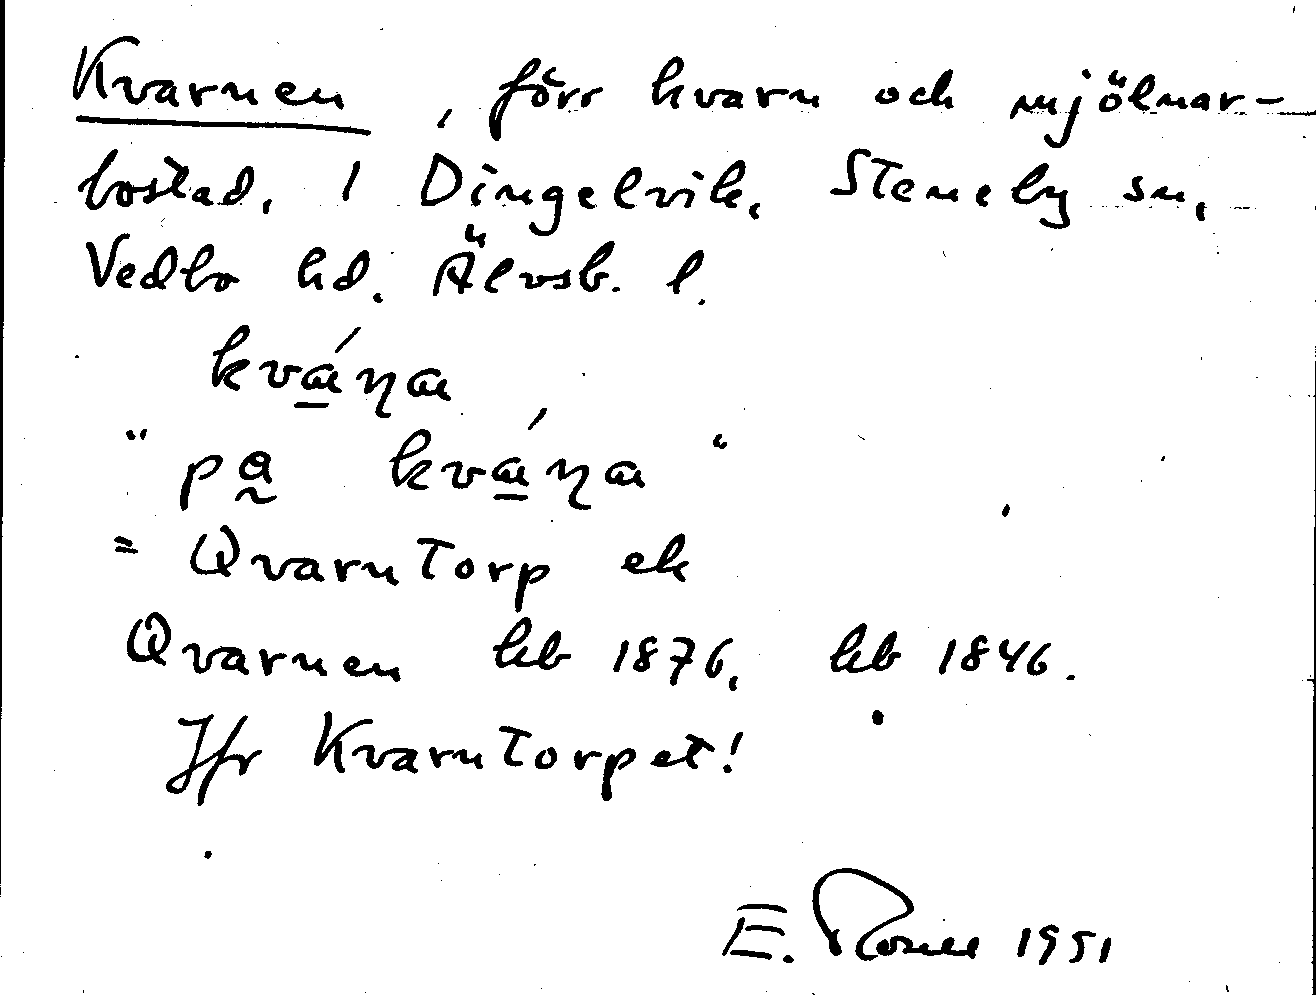 Kvarnen, förr kvarn och mjölnar-
bostad, i Dingelvik, Steneby sn,
Vedbo hd. Älvsb. l.
kváṇa
"på kváṇa"
= Qvarntorp ek
Qvarnen hb 1876, hb 1846.
Jfr Kvarntorpet!
E. 1951